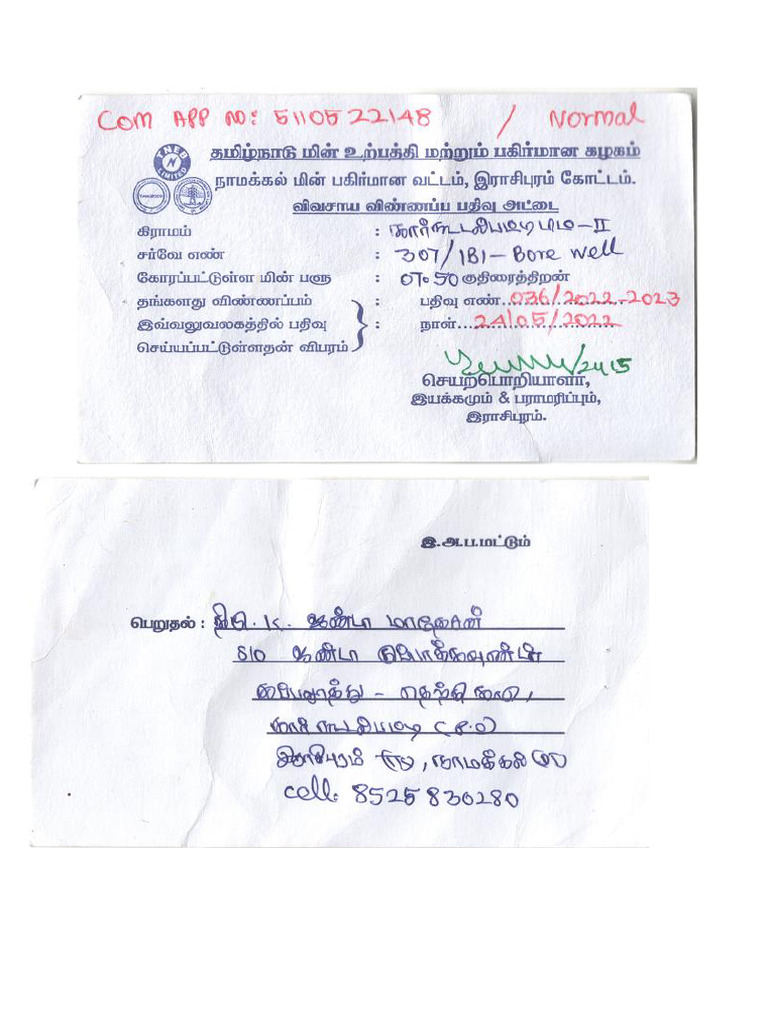 COM APP NO: 5110522148 / Normal
தமிழ்நாடு மின் உற்பத்தி மற்றும் பகிர்மான கழகம்
நாமக்கல் மின் பகிர்மான வட்டம், இராசிபுரம் கோட்டம்.
விவசாய விண்ணப்ப பதிவு அட்டை
கிராமம் : - II
சர்வே எண் : 307/1B1 - Bore well
கோரப்பட்டுள்ள மின் பளு : 07.50 குதிரைத்திறன்
தங்களது விண்ணப்பம் : பதிவு எண்.036/2022-2023
இவ்வலுவலகத்தில் பதிவு : நாள்...24/05/2022
செய்யப்பட்டுள்ளதன் விபரம்
24/5
செயற்பொறியாளர்,
இயக்கமும் & பராமரிப்பும்,
இராசிபுரம்.
இ.அ.ப.மட்டும்
பெறுதல் : திரு. K.
S/O
(P.O)
இராசிபுரம் (TK), நாமக்கல் (DT)
cell: 8525830280